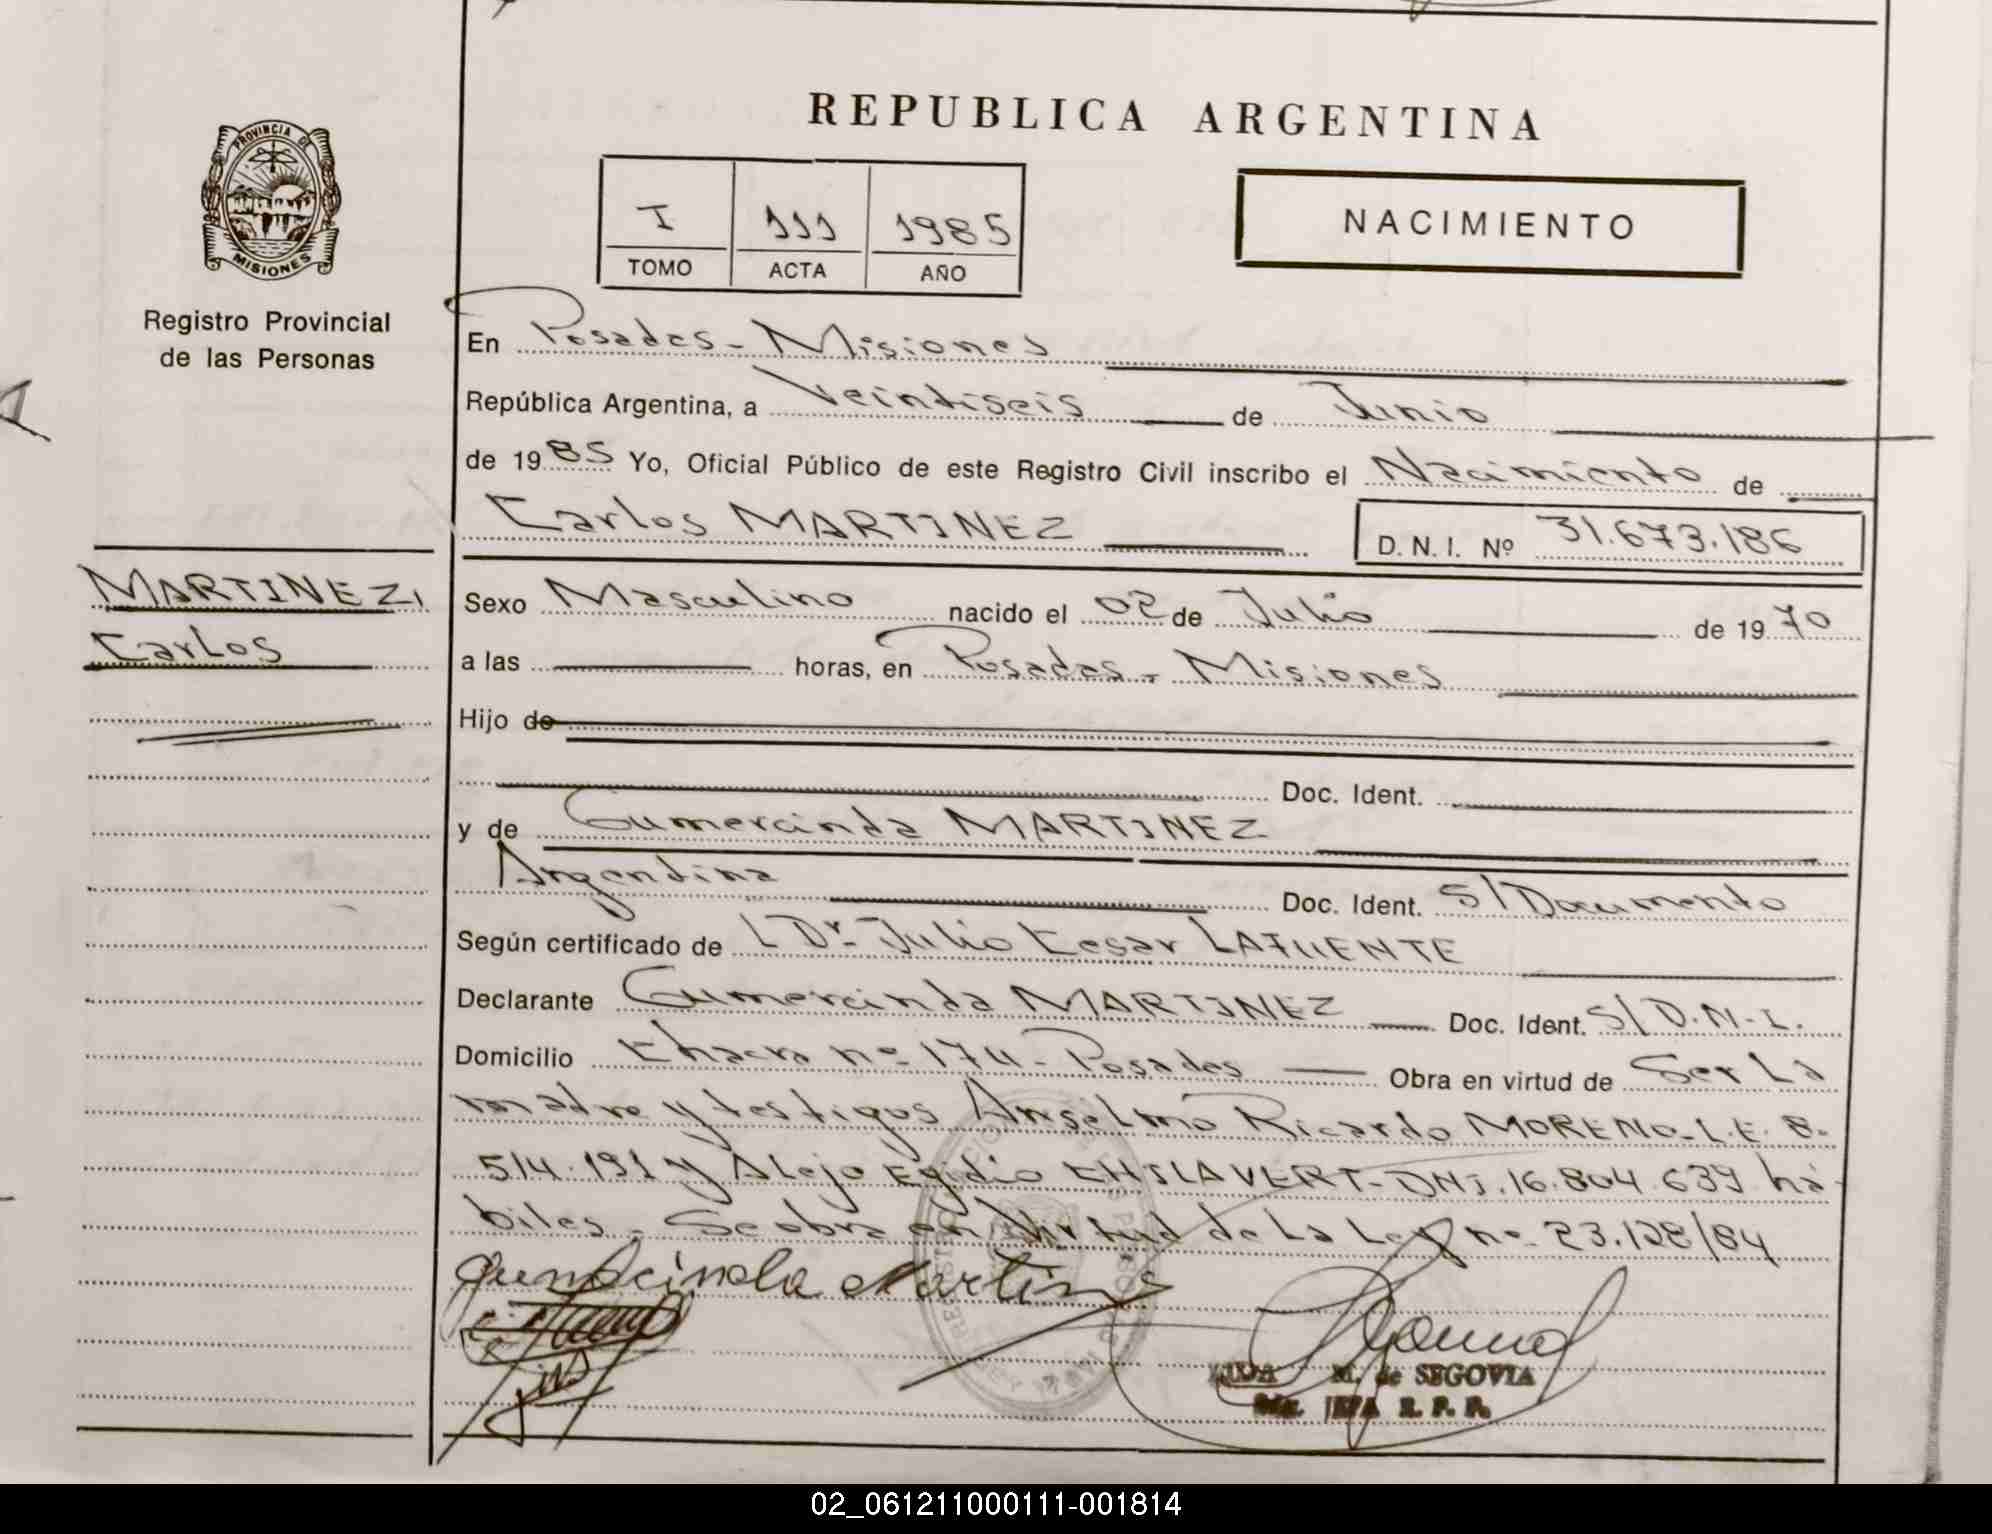 REPUBLICA ARGENTINA
PROVINCIA DE
MISIONES
Registro Provincial
de las Personas
I 111 1985
TOMO ACTA AÑO
NACIMIENTO
En Posadas - Misiones
República Argentina, a Veintiseis de Junio
de 1985 Yo, Oficial Público de este Registro Civil inscribo el Nacimiento de
Carlos MARTINEZ D.N.I. Nº 31.673.186
MARTINEZ,
Carlos
Sexo Masculino nacido el 02 de Julio de 1970
a las horas, en Posadas - Misiones
Hijo de
Doc. Ident.
y de Gumercinda MARTINEZ
Argentina Doc. Ident. S/Documento
Según certificado de L Dr. Julio Cesar LAFUENTE
Declarante Gumercinda MARTINEZ Doc. Ident. S/D.N.I.
Domicilio Chacra nº 174 - Posadas Obra en virtud de Ser La
madre y testigos Anselmo Ricardo MORENO - L.E. 8.
514.191 y Alejo Egidio CHILAVERT - DNI. 16.804.639 há-
biles. Se obra en virtud de La Ley nº 23.128/84
Gumercinda Martinez
M. de SEGOVIA
JEFA R. P. P.
02_061211000111-001814